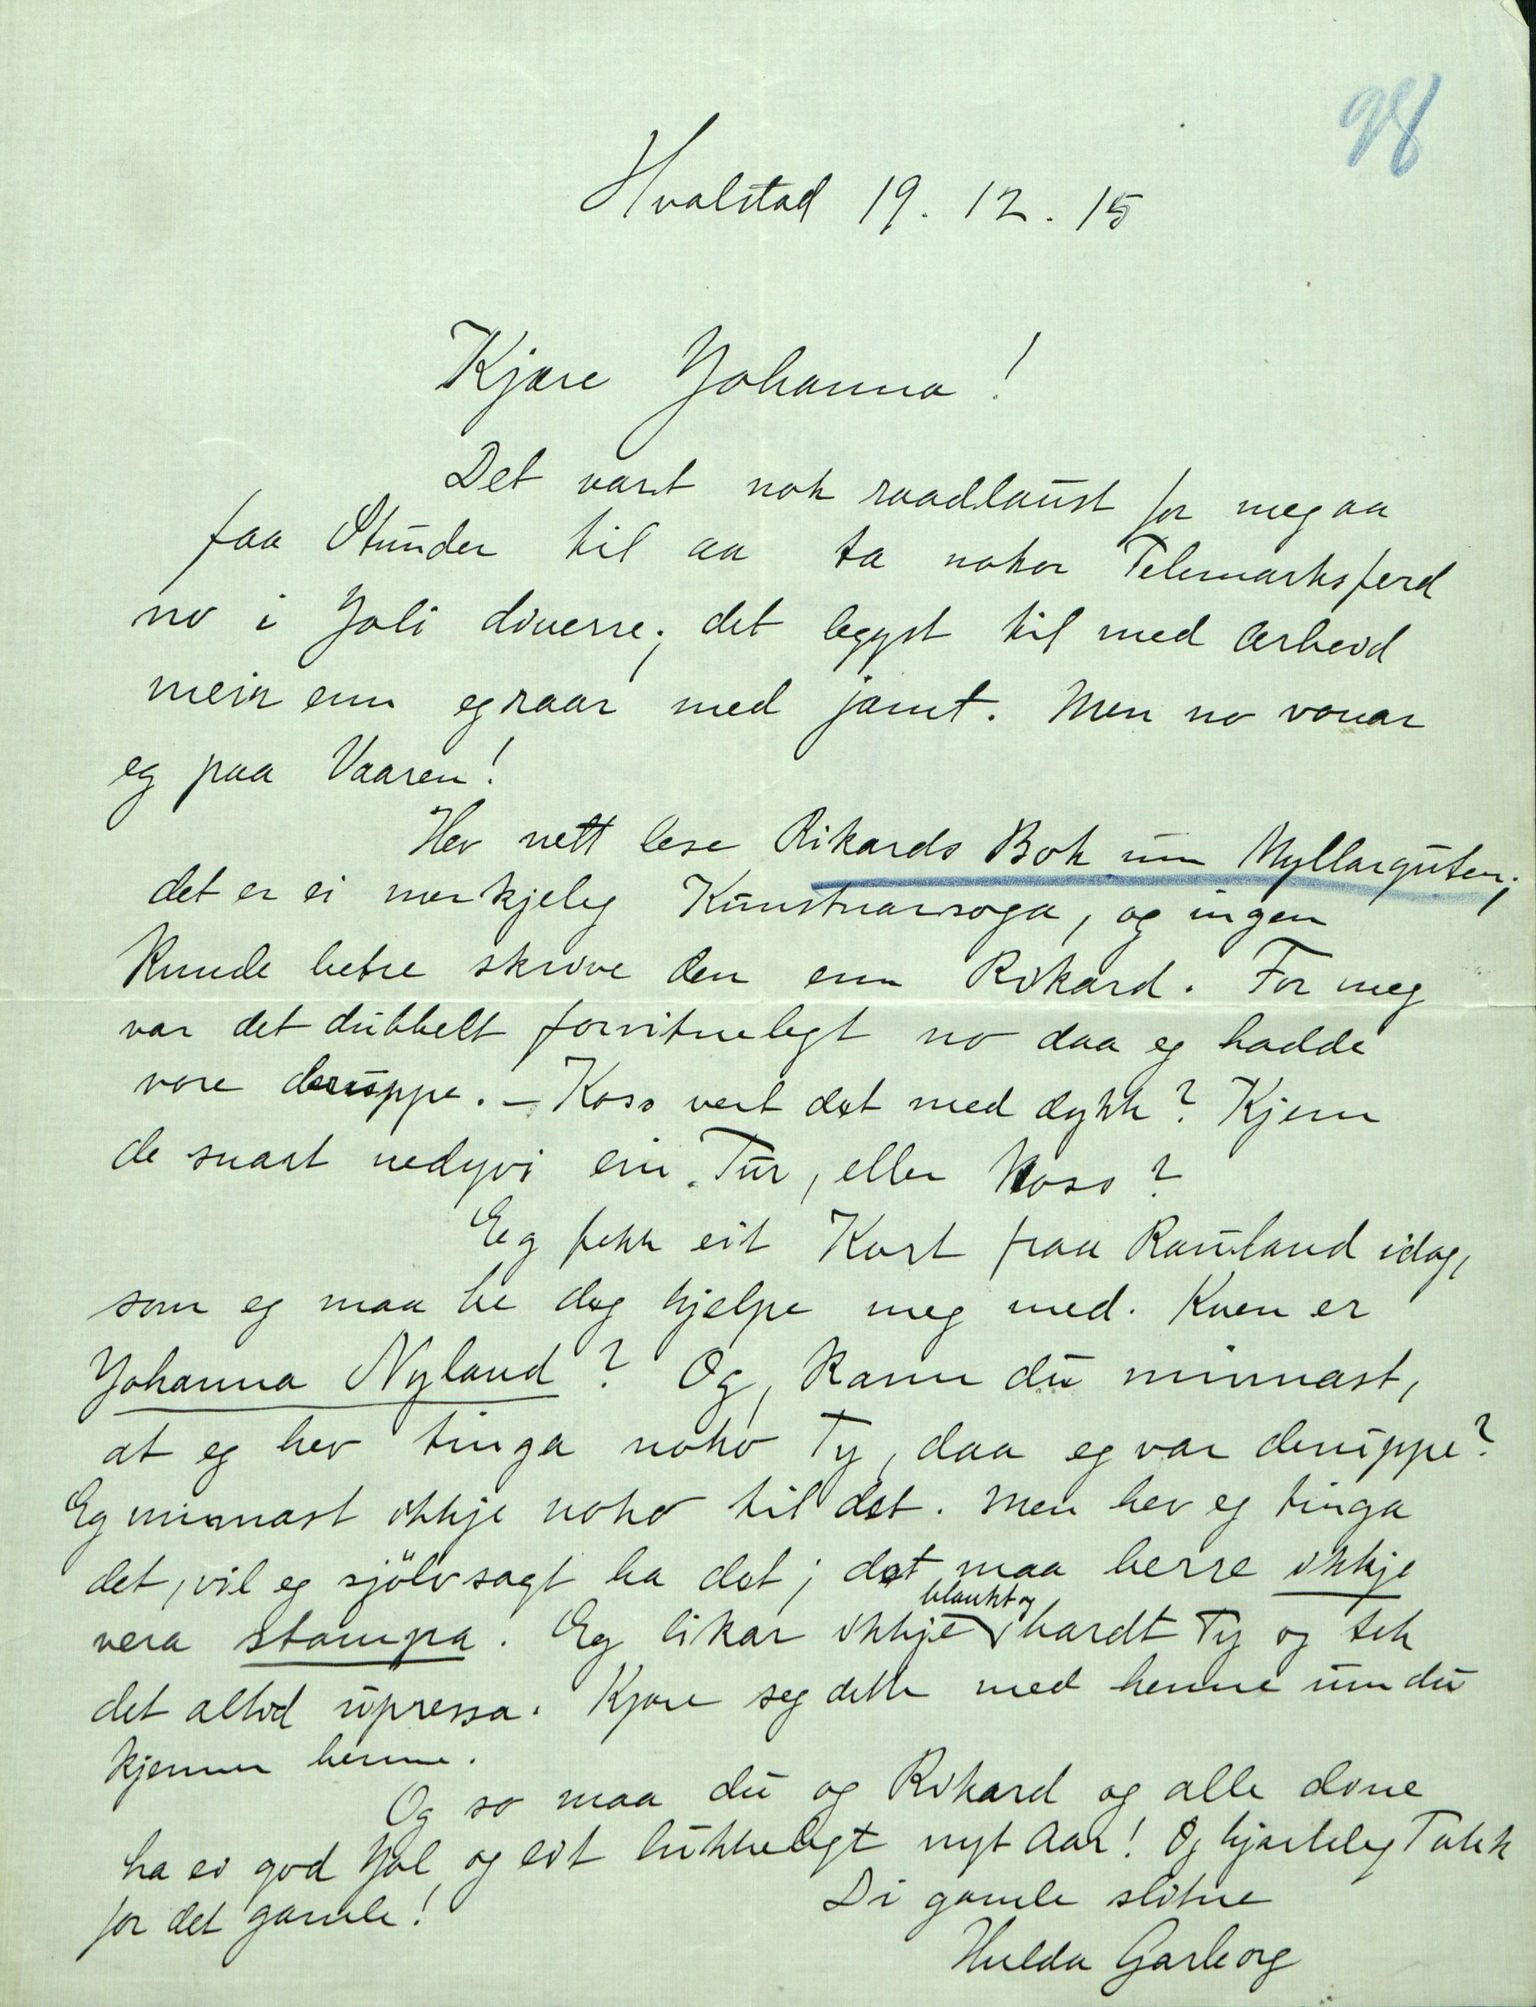 98
Hvalstad 19. 12. 15
Kjære Johanna!
Det vart nok raadlaust for meg aa
faa Stunder til aa ta nokor Telemarksferd
no i Joli diverre; det leggst til med Arbeid
meir enn eg raar med jamt. Men no vonar
eg paa Vaaren!
Hev nett lese Rikards Bok um Myllarguten;
det er ei merkjeleg Kunstnarsoga, og ingen
kunde betre skrive den enn Rikard. For meg
var det dubbelt forvitnelegt no daa eg hadde
vore deruppe. – Koss vert det med dykk? Kjem
de snart nedyvi ein Tur, eller Koss?
Eg fekk eit Kort fraa Rauland idag,
som eg maa be deg hjelpe meg med. Kven er
Johanna Nyland? Og, kann du minnast,
at eg hev tinga noko Ty, daa eg var deruppe?
Eg minnast ikkje noko til det. Men hev eg tinga
det, vil eg sjölvsagt ha det; det maa berre ikkje
vera stampa. Eg likar ikkje blankt og hardt Ty og tek
det altid upressa. Kjære seg dette med henne um du
kjenner henne.
Og so maa du og Rikard og alle dine
ha ei god Jol og eit lukkelegt nytt Aar! Og hjarteleg Takk
for det gamle!
Di gamle slitne
Hulda Garborg